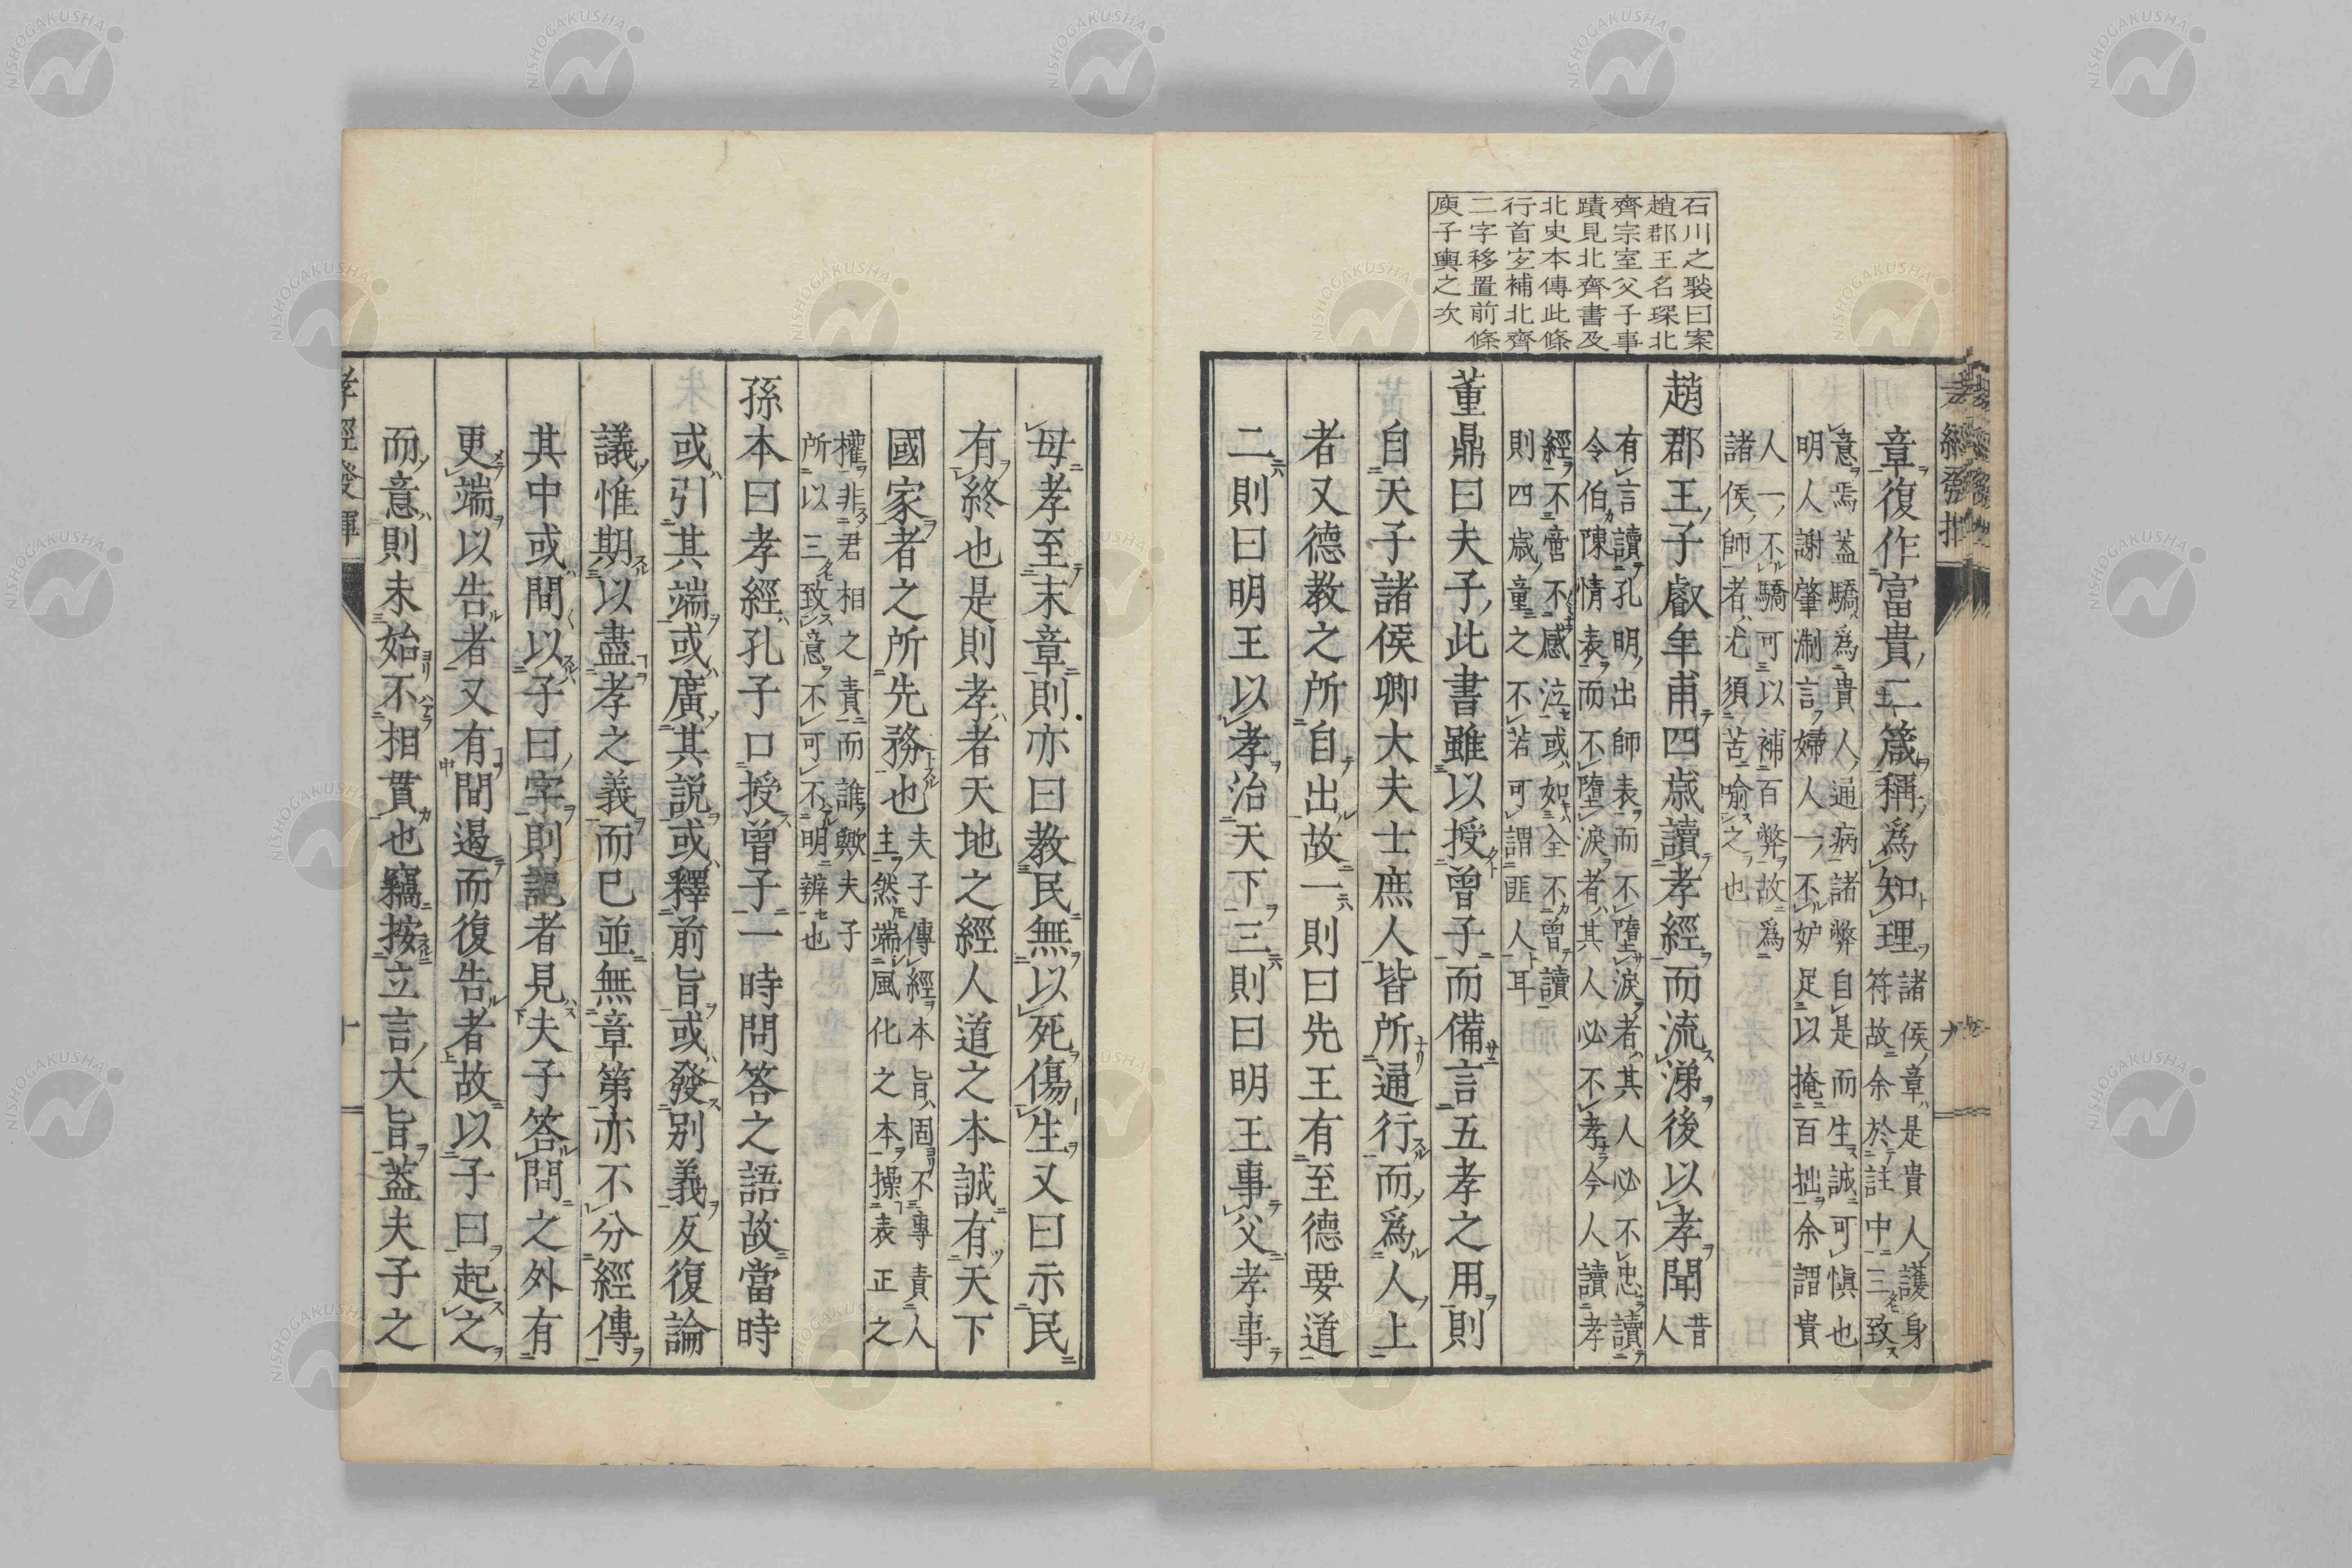 石川之褧曰案
趙郡王名琛北
齊宗室父子事
蹟見北齊書及
北史本傳此條
行首宜補北齊
二字移置前條
庾子輿之次
章復作富貴二箴稱爲知理
諸侯章是貴人護身
符故余於註中三致
意焉蓋驕爲貴人通病諸弊自是而生誠可愼也
明人謝肇淛言婦人一不妒足以掩百拙余謂貴
人一不驕可以補百弊故爲
諸侯師者尤須苦喻之也
趙郡王子叡年甫四歳讀孝經而流涕後以孝聞
昔
人
有言讀孔明出師表而不墮淚者其人必不忠讀
令伯陳情表而不墮淚者其人必不孝今人讀孝
經不啻不感泣或如全不曾讀
則四歳童之不若可謂匪人耳
董鼎曰夫子此書雖以授曾子而備言五孝之用則
自天子諸侯卿大夫士庶人皆所通行而爲人上
者又德教之所自出故一則曰先王有至德要道
二則曰明王以孝治天下三則曰明王事父孝事
母孝至末章則亦曰教民無以死傷生又曰示民
有終也是則孝者天地之經人道之本誠有天下
國家者之所先務也
夫子傳經本旨固不專責人
主然端風化之本操表正之
權非君相之責而誰歟夫子
所以三致意不可不明辨也
孫本曰孝經孔子口授曾子一時問答之語故當時
或引其端或廣其説或釋前旨或發別義反復論
議惟期以盡孝之義而已並無章第亦不分經傳
其中或間以子曰字則記者見夫子答問之外有
更端以告者又有間遏而復告者故以子曰起之
而意則未始不相貫也竊按立言大旨蓋夫子之
孝經發揮
NISHOGAKUSHA